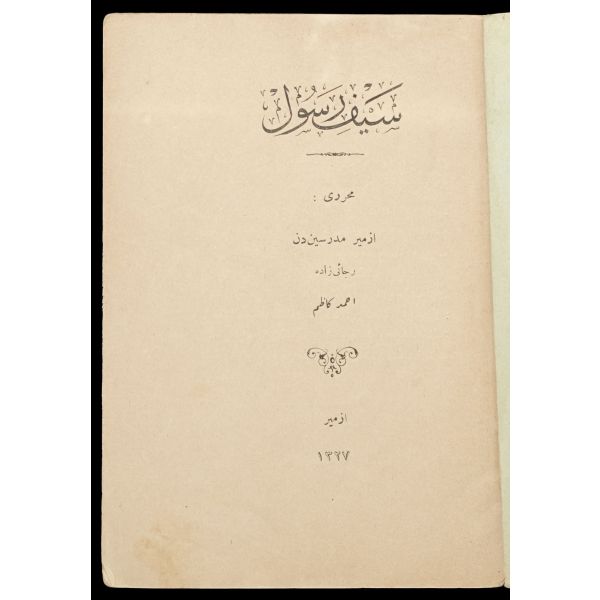 سَيْفِ رَسُولْ
محرری :
ازمیر مدرسین دن
رجائی زاده
احمد كاظم
ازمیر
١٣٢٧